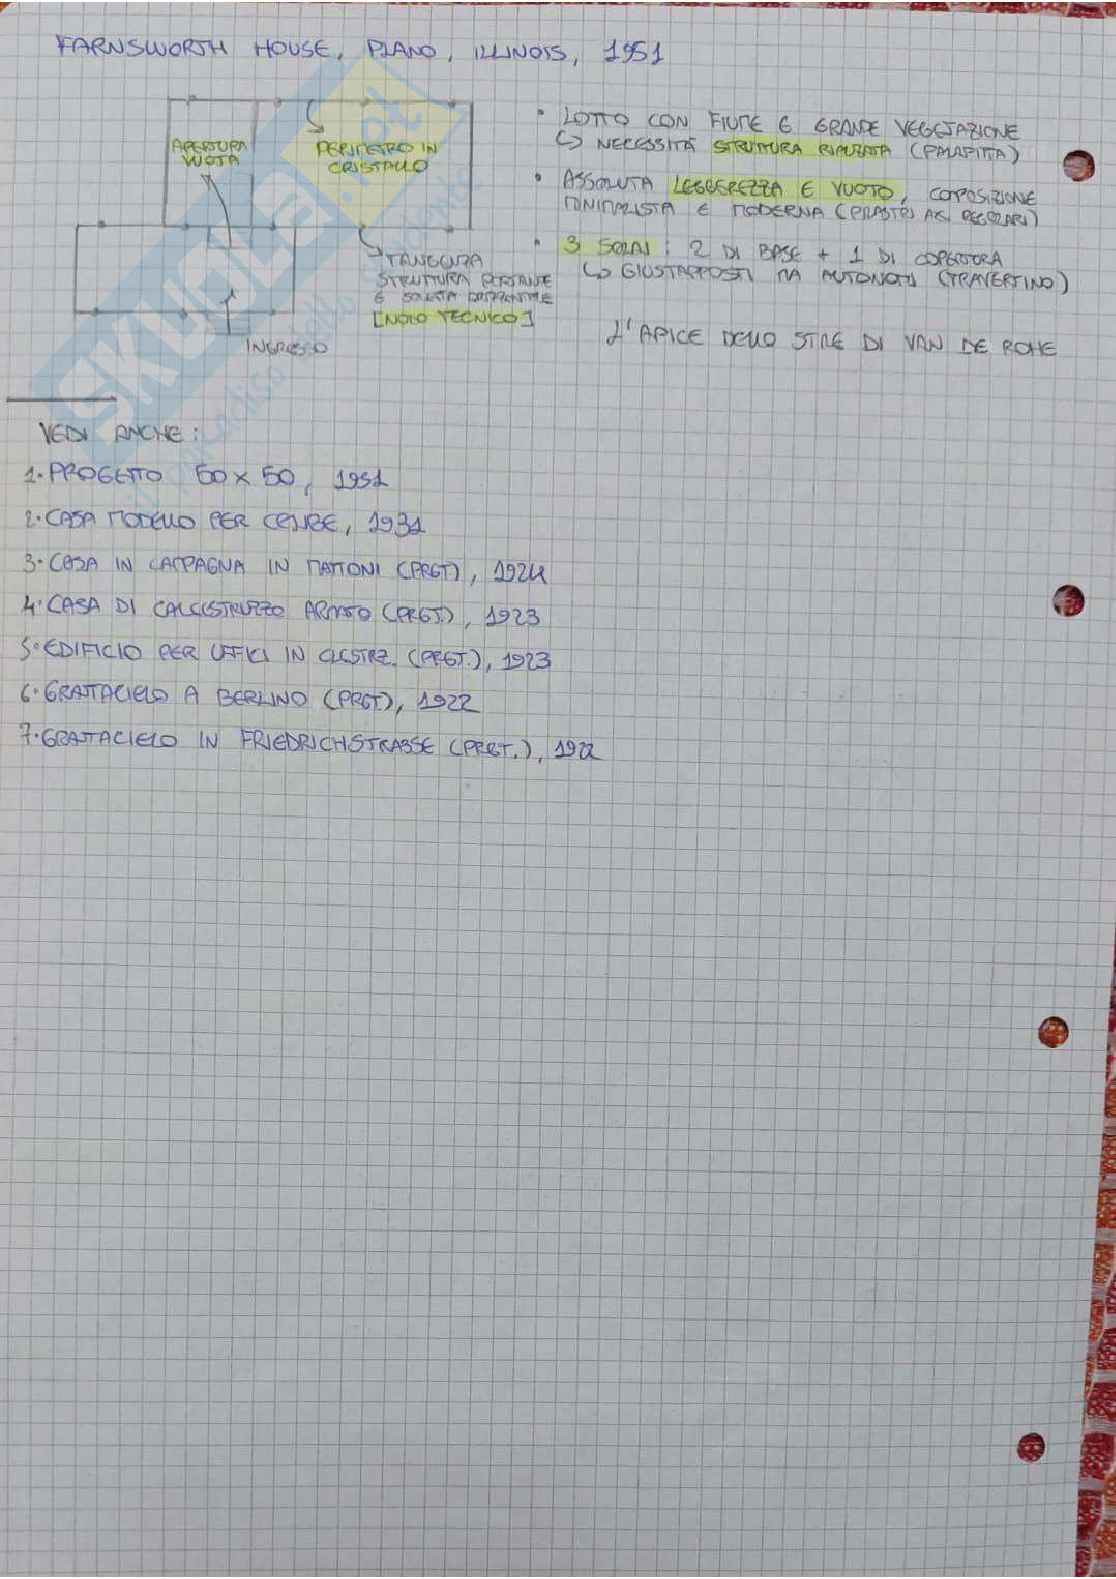 FARNSWORTH HOUSE, PLANO, ILLINOIS, 1951
APERTURA
VUOTA
PERIMETRO IN
CRISTALLO
TANGENZA
STRUTTURA PORTANTE
E SOLETA
[NODO TECNICO]
INGRESSO
• LOTTO CON FIUME E GRANDE VEGETAZIONE
↳ NECESSITÀ STRUTTURA RIALZATA (PALAFITTA)
• ASSOLUTA LEGGEREZZA E VUOTO, COMPOSIZIONE
MINIMALISTA E MODERNA (PILASTRI REGOLARI)
• 3 SOLAI: 2 DI BASE + 1 DI COPERTURA
↳ GIUSTAPPOSTI MA AUTONOMI (TRAVERTINO)
L'APICE DELLO STILE DI VAN DE ROHE
VEDI ANCHE:
1. PROGETTO 50 x 50, 1951
2. CASA MODELLO PER CELIBE, 1931
3. CASA IN CAMPAGNA IN MATTONI (PRGT), 1924
4. CASA DI CALCESTRUZZO ARMATO (PRGT.), 1923
5. EDIFICIO PER UFFICI IN CLCSTRZ. (PRGT.), 1923
6. GRATTACIELO A BERLINO (PRGT), 1922
7. GRATTACIELO IN FRIEDRICHSTRASSE (PRGT.), 1922
SKUOLA.net